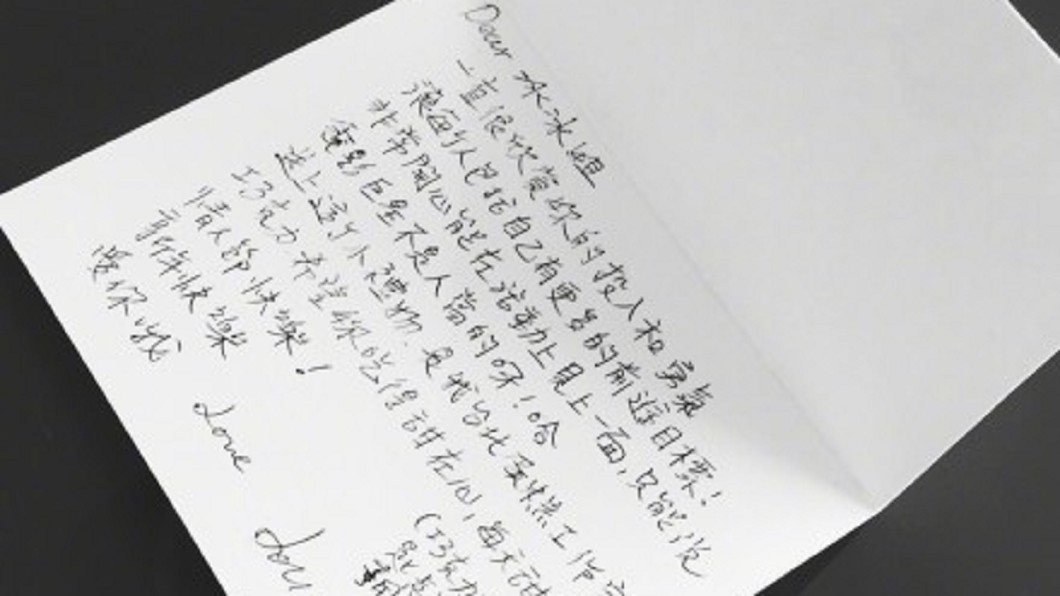 Dear 冰冰姐
一直很欣賞你的投入和勇氣
讓每個人也找自己有更多的前進目標!
非常開心能在活動上見上一面,只能說
電影巨星不是人當的呀!哈
送上這個小禮物,是我台北 工作
巧克力希望你吃得甜在心,每天甜
(巧克力
情人節快樂!
新年快樂
愛你哦
Love